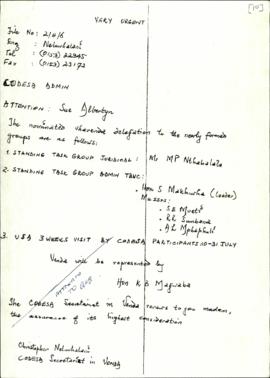 [10]
VERY URGENT
File No: 2/4/6
Enq : Nelwhalani
Tel : (0159) 22345
Fax : (0159) 23172
CODESA ADMIN
ATTENTION: Sue Albertyn
The nominated delegation to the newly formed
groups are as follows:
1. STANDING TASK GROUP JURIDICAL: Mr MP Nthabalala
2. STANDING TASK GROUP ADMIN TBVC:
- Hon S Makhuvha (Leader)
Messrs:
- S E
- R R
- A L Mphaphuli
3. USA 3 WEEKS VISIT BY CODESA PARTICIPANTS 10-31 JULY
Venda will be represented by
Hon K B Magwaba
ATTENDED
TO
The CODESA Secretariat in Venda renews to you madam,
the assurance of its highest consideration
Christopher Nelwhalani
CODESA Secretariat in Venda